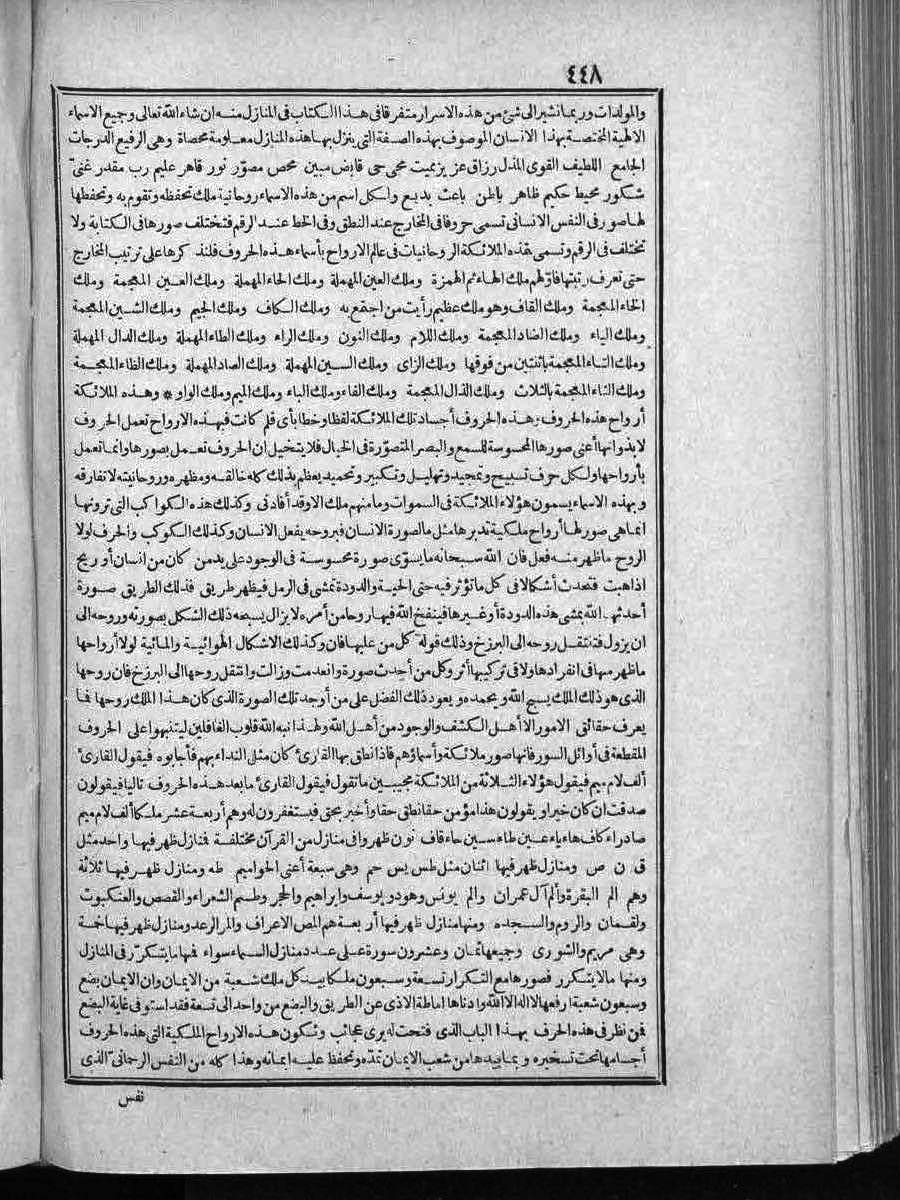 ٤٤٨
والمولدات وربما نشير الى شئ من هذه الاسرار متفرقا فى هذا الكتاب فى المنازل منه ان شاء الله تعالى وجميع الاسماء
الالهية المختصة بهذا الانسان الموصوف بهذه الصفة التى ينزل بها هذه المنازل معلومة محصاة وهى الرفيع الدرجات
الجامع اللطيف القوى المذل رزاق عزيز مميت محى حى قابض مبين محص مصوّر نور قاهر عليم رب مقدر غنىّ
شكور محيط حكيم ظاهر باطن باعث بديع ولكل اسم من هذه الاسماء روحانية ملك تحفظه وتقوم به وتحفظها
لها صور فى النفس الانسانى تسمى حروفا فى المخارج عند النطق وفى الخط عند الرقم فتختلف صورها فى الكتابة ولا
تختلف فى الرقم وتسمى هذه الملائكة الروحانيات فى عالم الارواح بأسماء هذه الحروف فلنذكرها على ترتيب المخارج
حتى تعرف رتبتها فاوّلهم ملك الهاء ثم الهمزة وملك العين المهملة وملك الحاء المهملة وملك الغين المعجمة وملك
الخاء المعجمة وملك القاف وهو ملك عظيم رأيت من اجتمع به وملك الكاف وملك الجيم وملك الشين المعجمة
وملك الياء وملك الضاد المعجمة وملك اللام وملك النون وملك الراء وملك الطاء المهملة وملك الدال المهملة
وملك التاء المعجمة باثنتين من فوقها وملك الزاى وملك السين المهملة وملك الصاد المهملة وملك الظاء المعجمة
وملك الثاء المعجمة بالثلاث وملك الذال المعجمة وملك الفاء وملك الباء وملك الميم وملك الواو * وهذه الملائكة
أرواح هذه الحروف وهذه الحروف أجساد تلك الملائكة لفظا وخطا بأى قلم كانت فبهذه الارواح تعمل الحروف
لا بذواتها أعنى صورها المحسوسة للسمع والبصر المتصوّرة فى الخيال فلا يتخيل ان الحروف تعمل بصورها وانما تعمل
بأرواحها ولكل حرف تسبيح وتمجيد وتهليل وتكبير وتحميد يعظم بذلك كله خالقه ومظهره وروحانيته لا تفارقه
وبهذه الاسماء يسمون هؤلاء الملائكة فى السموات وما منهم ملك الا وقد أفادنى وكذلك هذه الكواكب التى ترونها
انما هى صور لها أرواح ملكية تدبرها مثل ما لصورة الانسان فبروحه يفعل الانسان وكذلك الكوكب والحرف لولا
الروح ما ظهر منه فعل فان الله سبحانه ما يسوّى صورة محسوسة فى الوجود على يد من كان من انسان أو ريح
اذا هبت فتحدث أشكالا فى كل ما تؤثر فيه حتى الحية والدودة تمشى فى الرمل فيظهر طريق فذلك الطريق صورة
أحدثها الله بمشى هذه الدودة أو غيرها فينفخ الله فيها روحا من أمره لا يزال يسبحه ذلك الشكل بصورته وروحه الى
ان يزول فتنتقل روحه الى البرزخ وذلك قوله كل من عليها فان وكذلك الاشكال الهوائية والمائية لولا أرواحها
ما ظهر منها فى انفرادها ولا فى تركيبها أثر وكل من أحدث صورة وانعدمت وزالت وانتقل روحها الى البرزخ فان روحها
الذى هو ذلك الملك يسبح الله ويحمده ويعود ذلك الفضل على من أوجد تلك الصورة الذى كان هذا الملك روحها فما
يعرف حقائق الامور الا أهل الكشف والوجود من أهل الله ولهذا نبه الله قلوب الغافلين ليتنبهوا على الحروف
المقطعة فى أوائل السور فانها صور ملائكة وأسماؤهم فاذا نطق بها القارئ كان مثل النداء بهم فأجابوه فيقول القارئ
ألف لام ميم فيقول هؤلاء الثلاثة من الملائكة مجيبين ما تقول فيقول القارئ ما بعد هذه الحروف تاليا فيقولون
صدقت ان كان خيرا ويقولون هذا مؤمن حقا نطق حقا وأخبر بحق فيستغفرون له وهم أربعة عشر ملكا ألف لام ميم
صاد راء كاف هاء ياء عين طاء سين حاء قاف نون ظهروا فى منازل من القرآن مختلفة فمنازل ظهر فيها واحد مثل
ق ن ص ومنازل ظهر فيها اثنان مثل طس يس حم وهى سبعة أعنى الحواميم طه ومنازل ظهر فيها ثلاثة
وهم الم البقرة والم آل عمران والر يونس وهود ويوسف وابراهيم والحجر وطسم الشعراء والقصص والعنكبوت
ولقمان والروم والسجده ومنها منازل ظهر فيها أربعة هم المص الاعراف والمر الرعد ومنازل ظهر فيها خمسة
وهى مريم والشورى وجميعها ثمان وعشرون سورة على عدد منازل السماء سواء فمنها ما يتكرّر فى المنازل
ومنها ما لا يتكرر فصورها مع التكرار تسعة وسبعون ملكا بيد كل ملك شعبة من الايمان وان الايمان بضع
وسبعون شعبة ارفعها لا اله الا الله وادناها اماطة الاذى عن الطريق والبضع من واحد الى تسعة فقد استوفى غاية البضع
فمن نظر فى هذه الحروف بهذا الباب الذى فتحت له يرى عجائب وتكون هذه الارواح الملكية التى هذه الحروف
أجسامها تحت تسخيره وبما بيدها من شعب الايمان تمدّه وتحفظ عليه ايمانه وهذا كله من النفس الرحمانىّ الذى
نفس